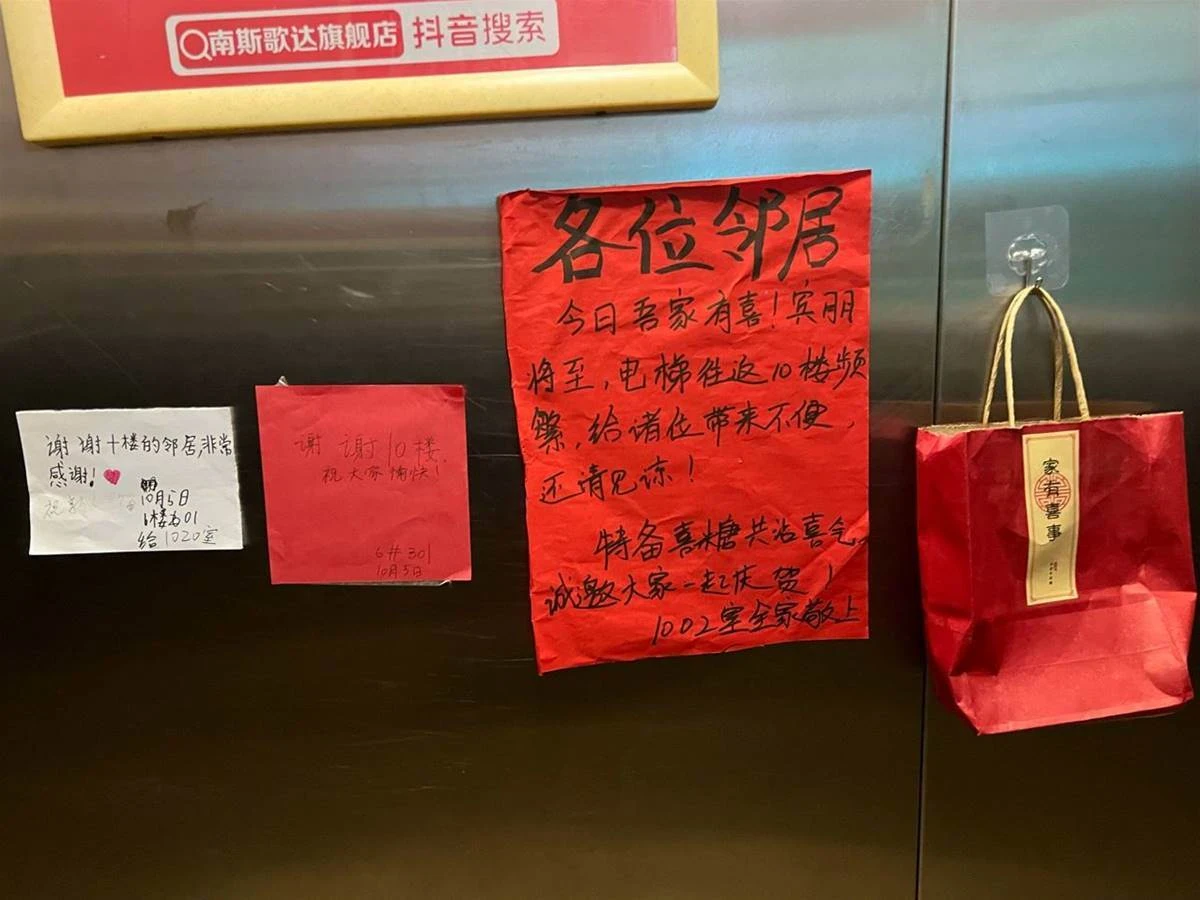 南斯歌达旗舰店 抖音搜索
各位邻居
今日吾家有喜！宾朋
将至，电梯往返10楼频
繁，给诸位带来不便，
还请见谅！
特备喜糖共沾喜气
诚邀大家一起庆贺！
1002室全家敬上
谢谢10楼.
祝大家愉快！
6#301
10月5日
谢谢十楼的邻居,非常
感谢!
10月5日
给1020室
家有喜事